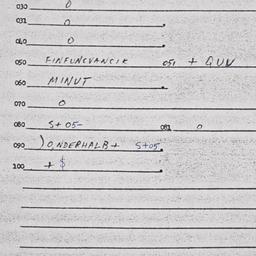 030 0
031 0
040 0
050 FINFUNCVANCIK 051 + QUV
060 MINUT
070 0
080 S+ 05- 081 0
090 )O,NDERHALB+ S+05
100 + $